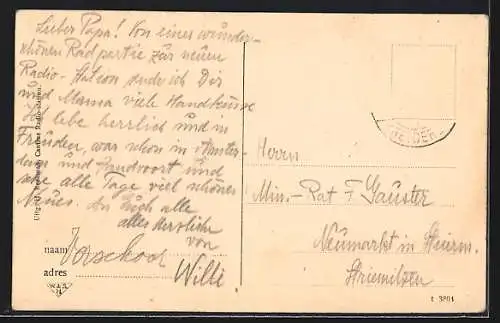 Lieber Papa! Von eines wunder-
schönen Radpartie zur neuen
Radio-Station sende ich Dir
und Mama viele Handküsse
Ich lebe herrlich und in
Freuden, war schon in Amster-
dam und Zandvoort und
sehe alle Tage viel schönes
Neues. An Euch alle
alles Herzliche
von
Willi
naam
adres
Herrn
Min.-Rat F. Gauster
Neumarkt in Steierm.
t 3801